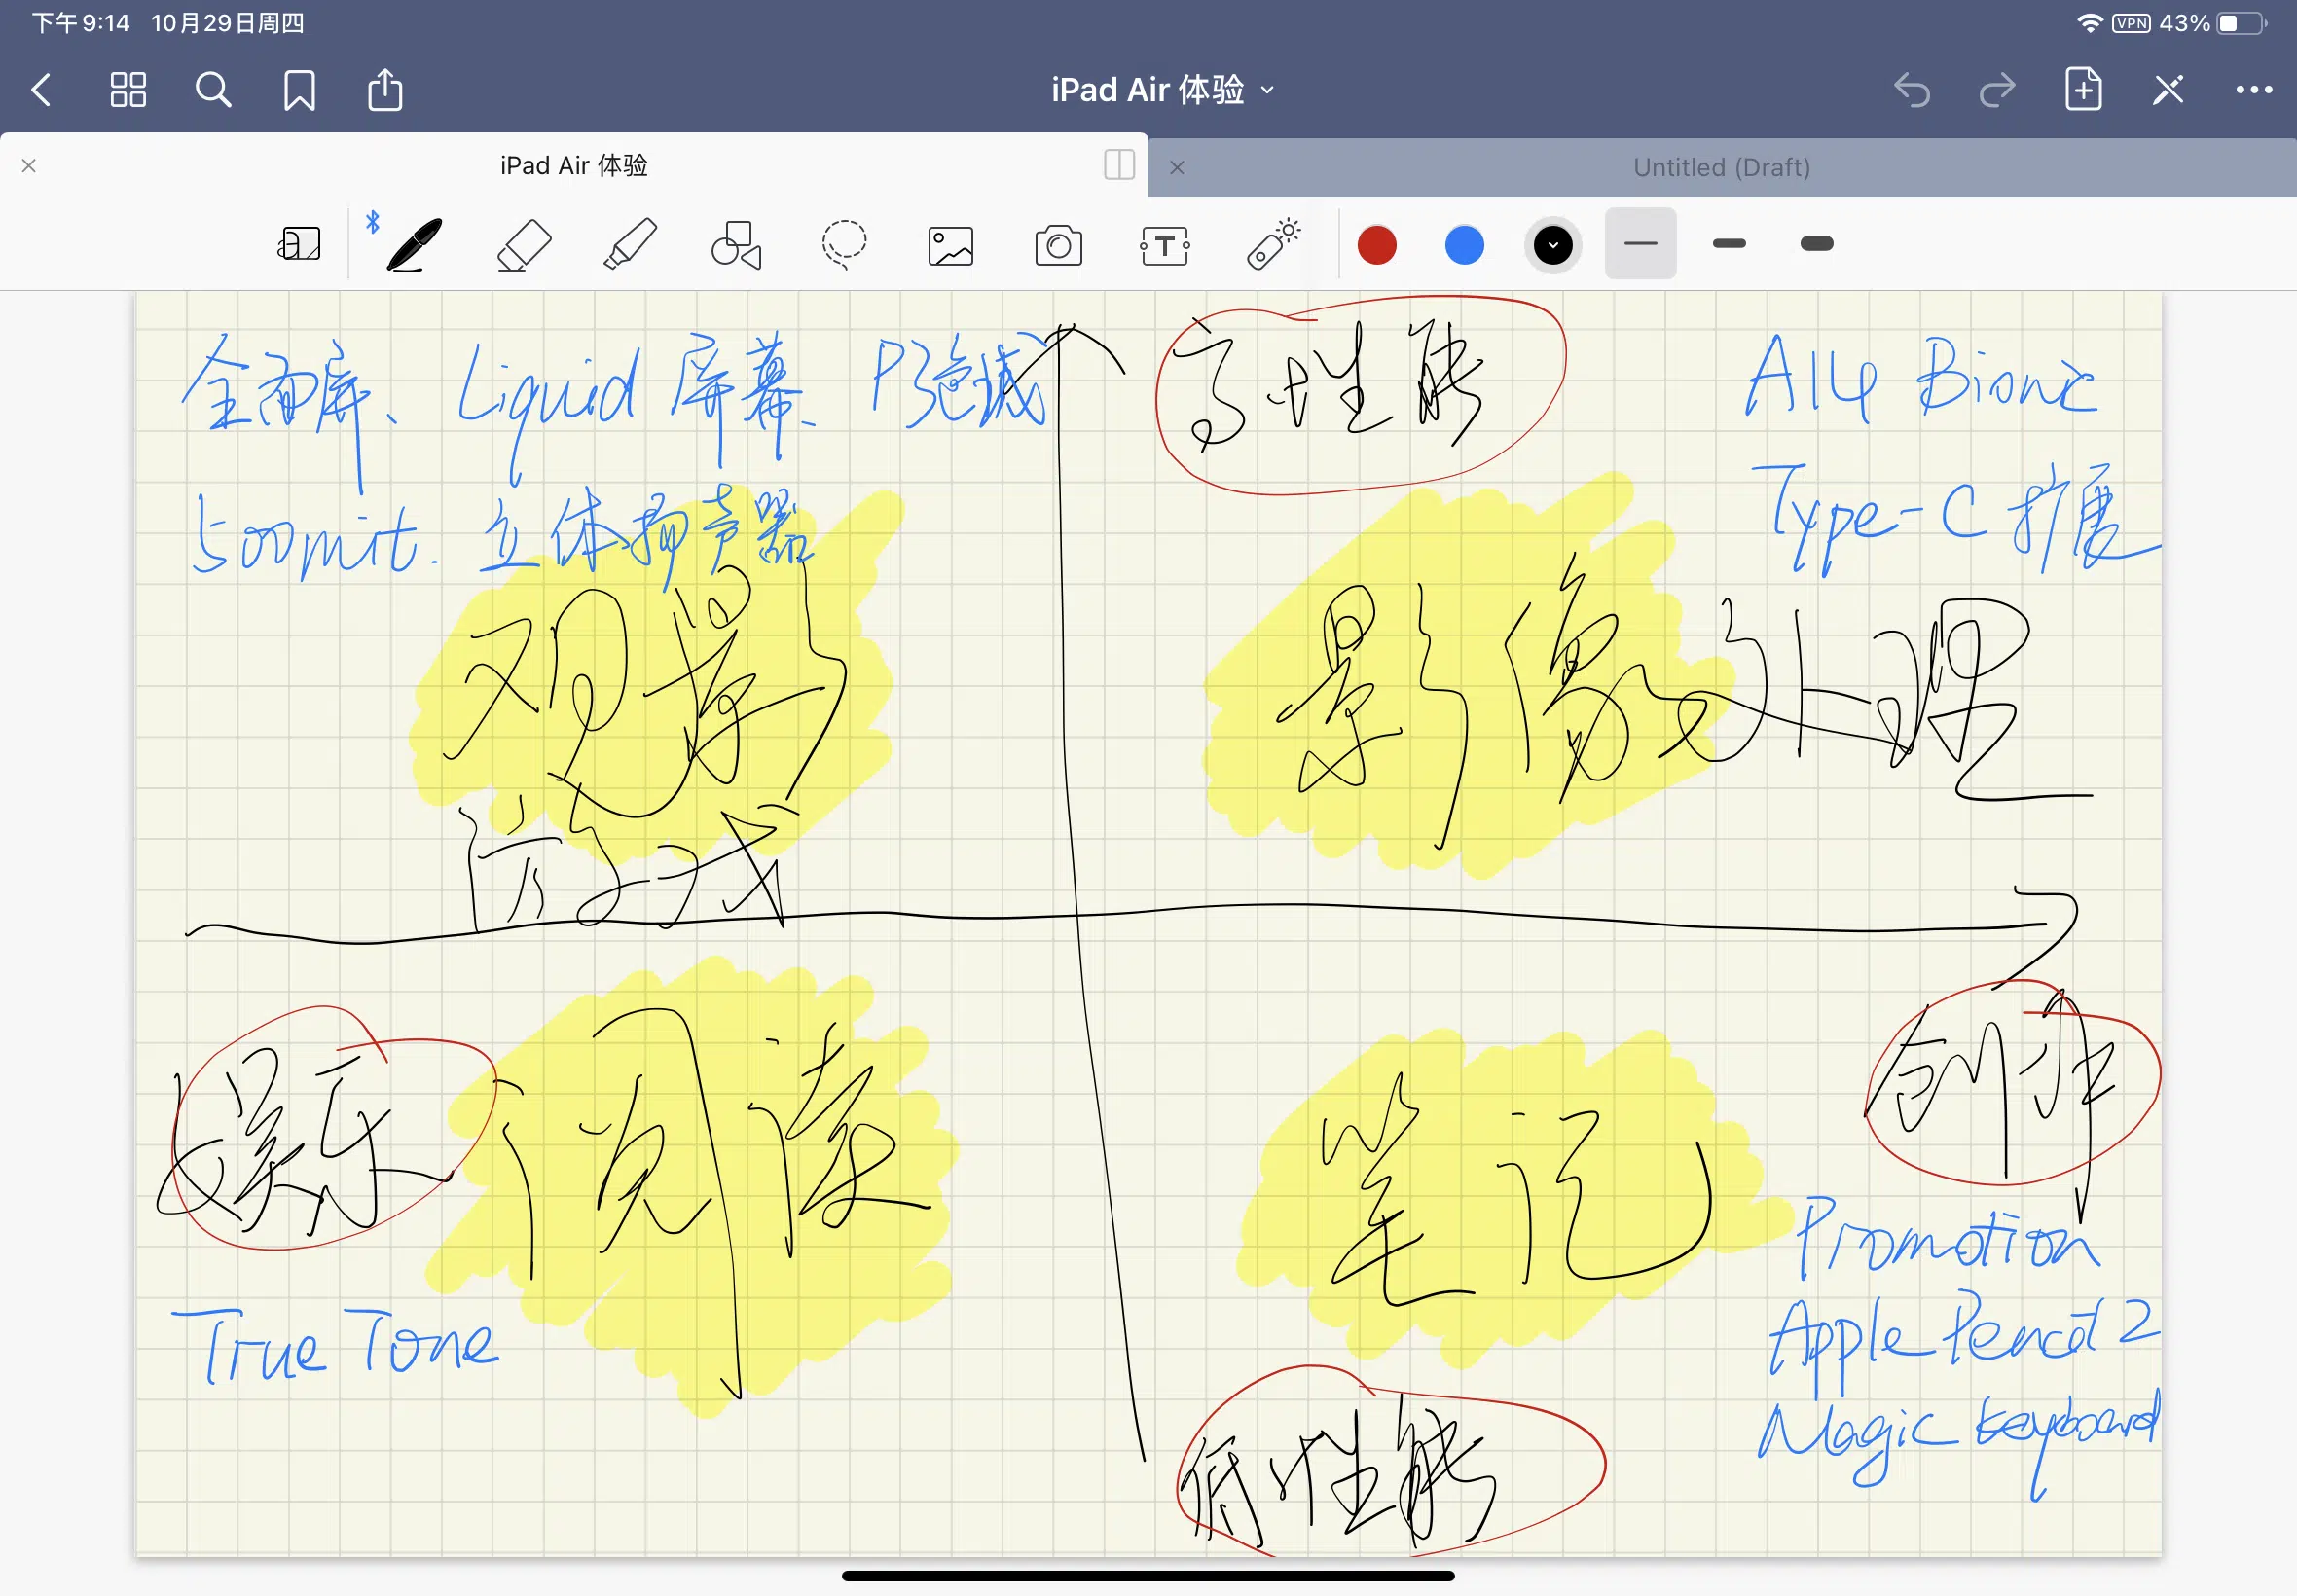 下午9:14 10月29日周四
VPN 43%
iPad Air 体验
iPad Air 体验
Untitled (Draft)
全面屏、Liquid 屏幕、P3色域
500nit. 立体扬声器
高性能
A14 Bionic
Type-C 扩展
观影
游戏
影像处理
娱乐
阅读
笔记
创作
True Tone
Promotion
Apple Pencil 2
Magic keyboard
低性能